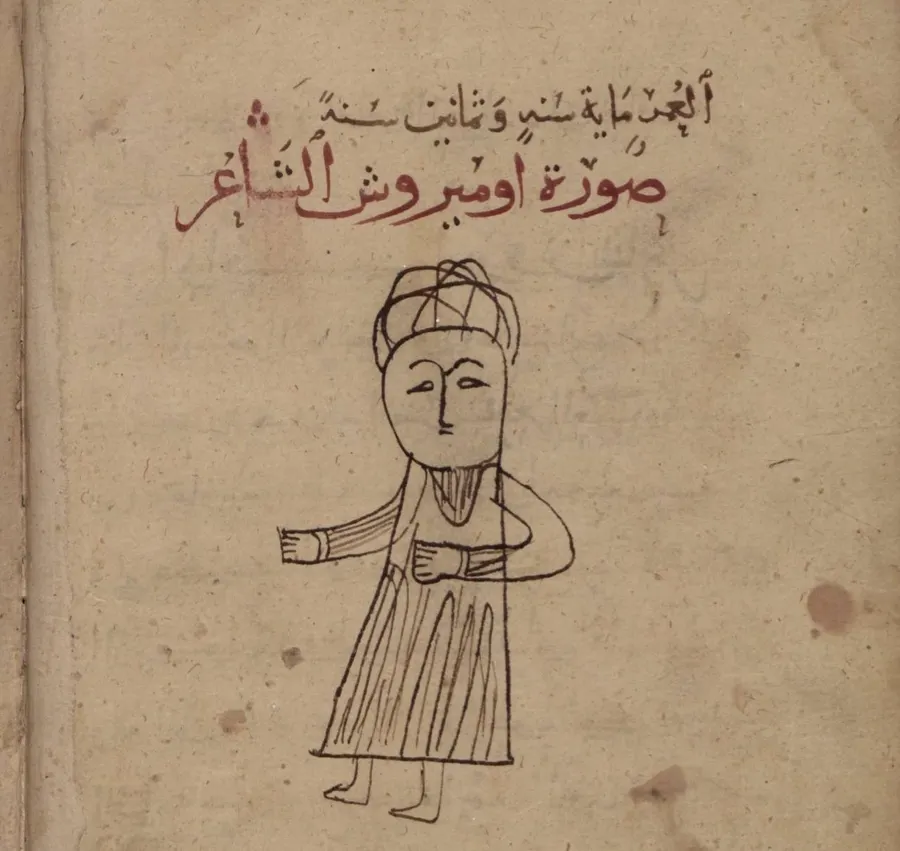 العُمر مَاية سَنهٍ وَثمانين سَنةً
صُورَة اوميروش الشَاعر